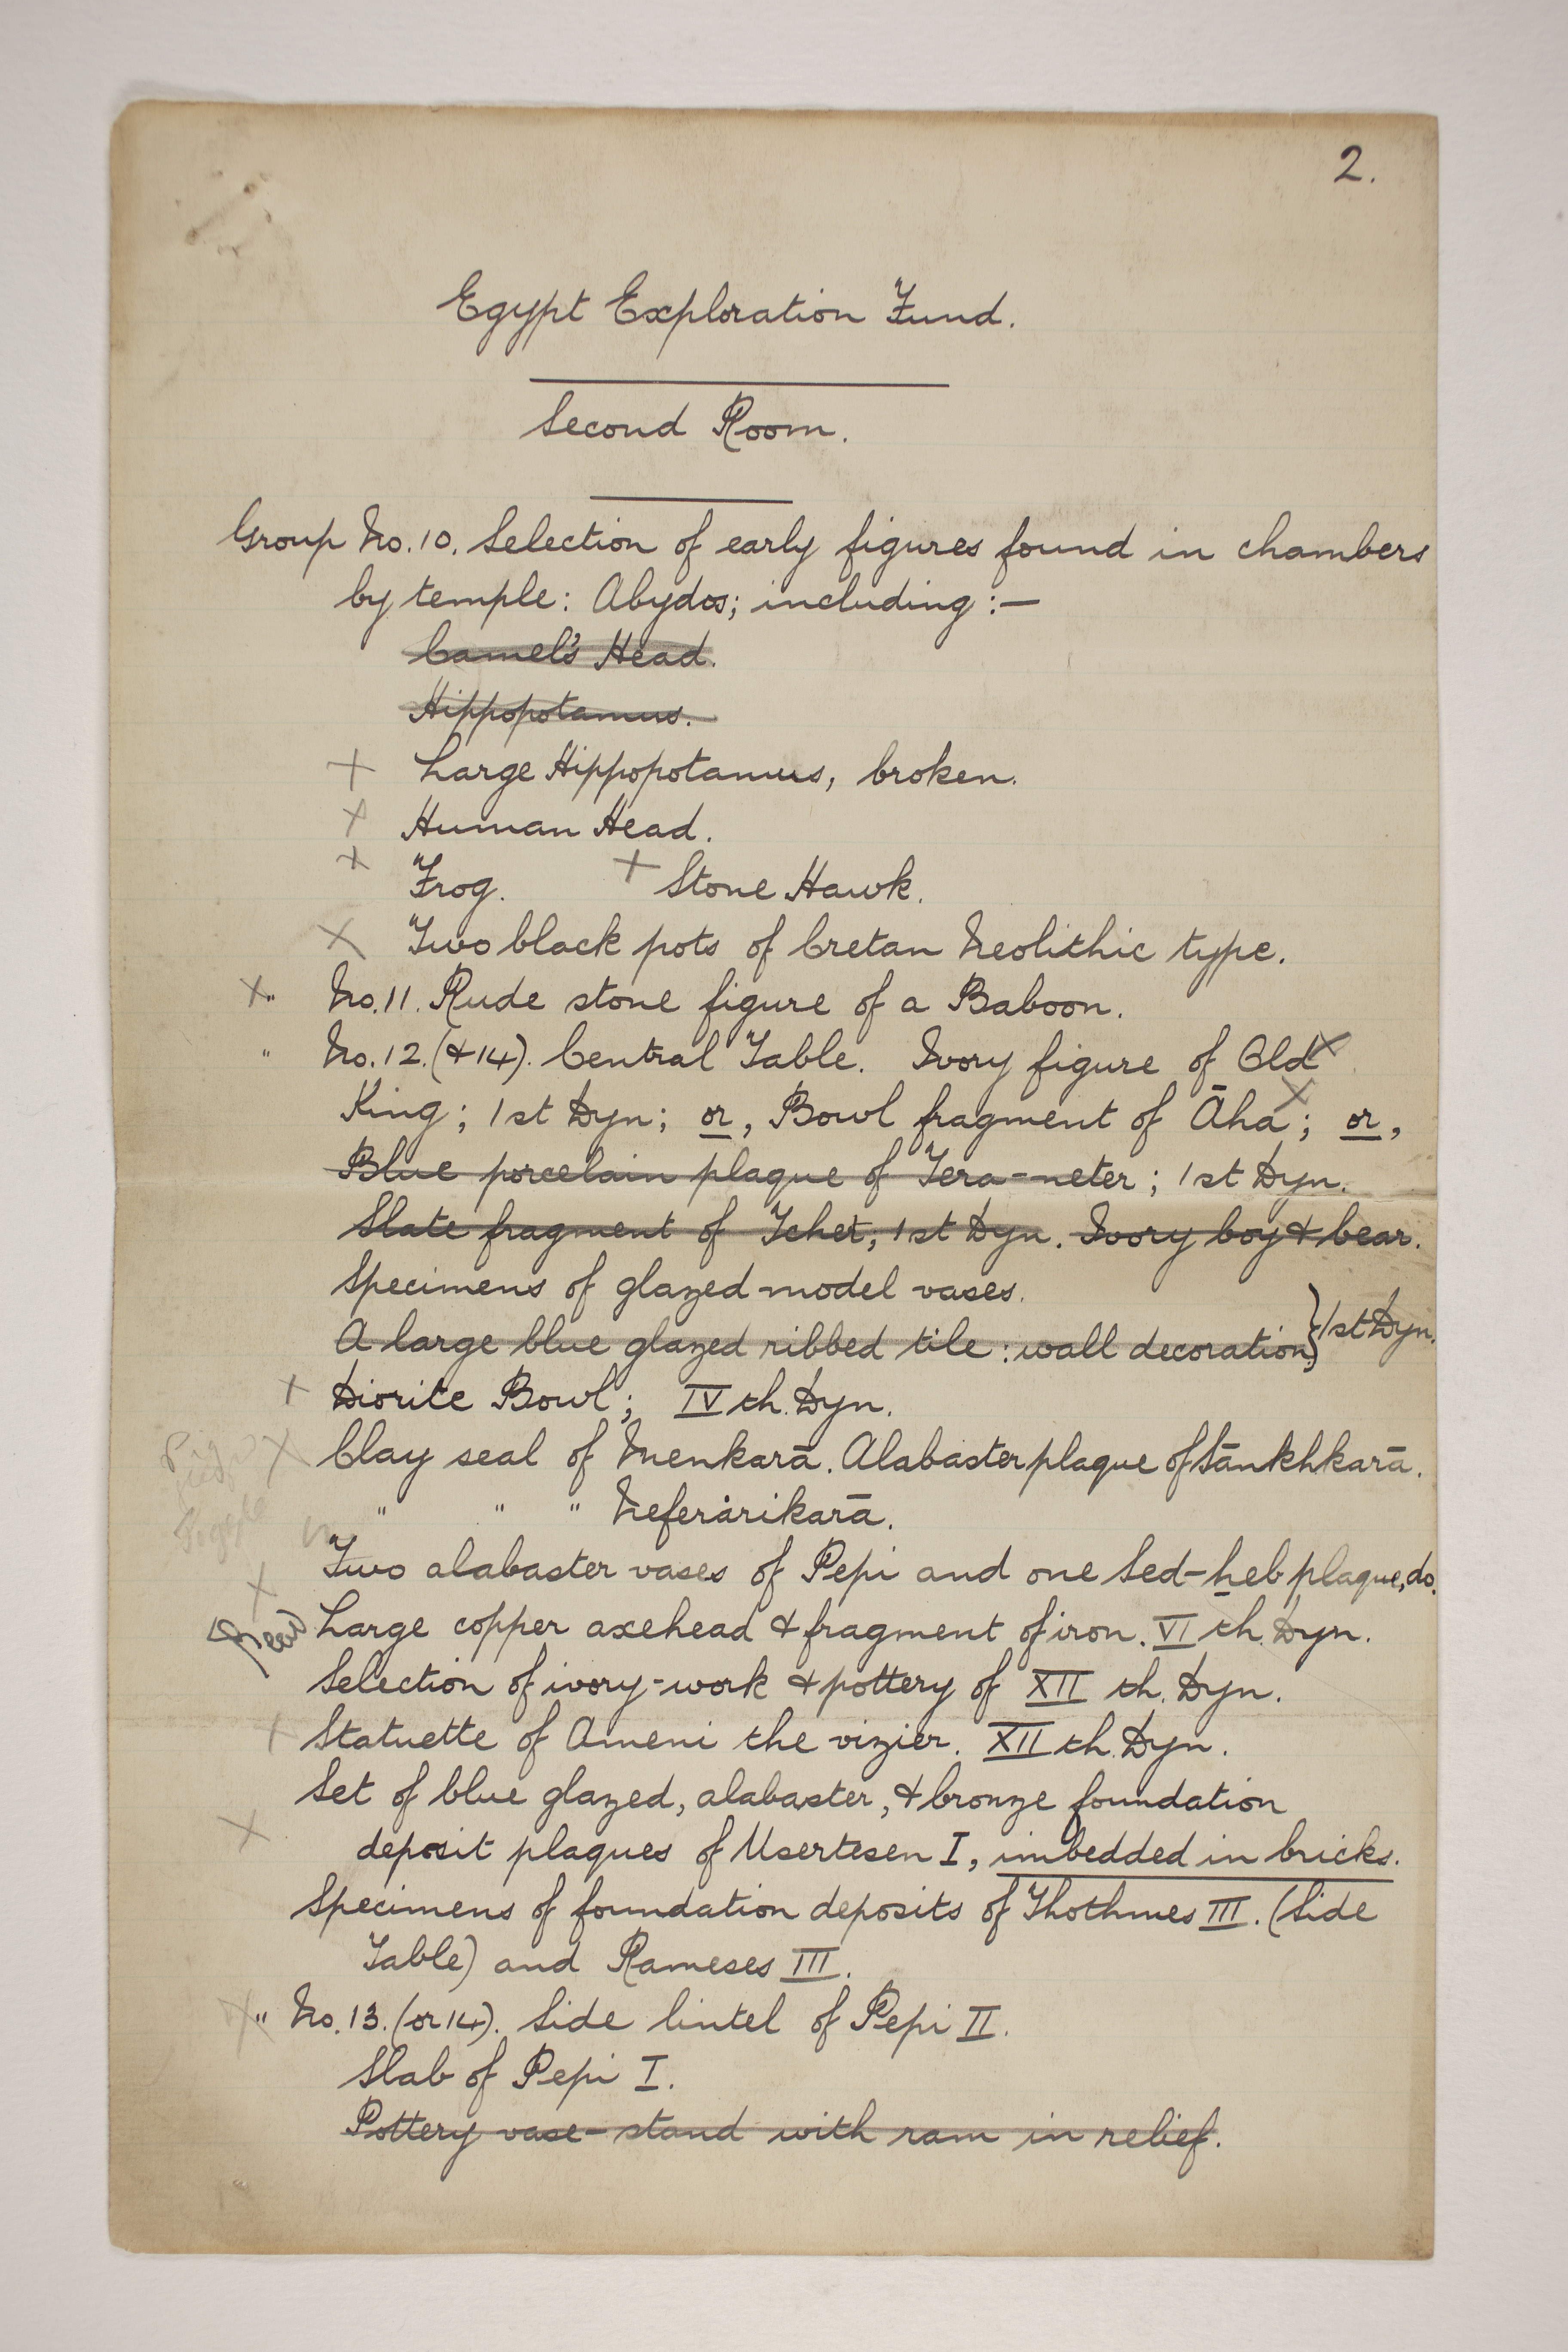 2.
Egypt Exploration Fund.
Second Room.
Group No. 10. Selection of early figures found in chambers
by temple: Abydos; including :—
Camel's Head.
Hippopotamus.
+ Large Hippopotamus, broken.
x Human Head.
x Frog. + Stone Hawk.
x Two black pots of Cretan Neolithic type.
x " No. 11. Rude stone figure of a Baboon.
" No. 12. (& 14). Central Table. Ivory figure of Old x
King; 1st Dyn; or, Bowl fragment of Āha x; or,
Blue porcelain plaque of Tera-neter; 1st Dyn.
Slate fragment of Tchet, 1st Dyn. Ivory boy & bear.
Specimens of glazed model vases.
A large blue glazed ribbed tile: wall decoration, } 1st Dyn.
x Diorite Bowl; IVth. Dyn.
x Clay seal of Menkarā. Alabaster plaque of Sānkhkarā.
" " " Neferȧrikarā.
x Two alabaster vases of Pepi and one Sed-heb plaque, do.
Large copper axehead & fragment of iron. VIth. Dyn.
Selection of ivory-work & pottery of XIIth. Dyn.
x Statuette of Ameni the vizier. XIIth. Dyn.
Set of blue glazed, alabaster, & bronze foundation
x deposit plaques of Usertesen I, imbedded in bricks.
Specimens of foundation deposits of Thothmes III. (Side
Table) and Rameses III.
x " No. 13. (or 14). Side lintel of Pepi II.
Slab of Pepi I.
Pottery vase-stand with ram in relief.